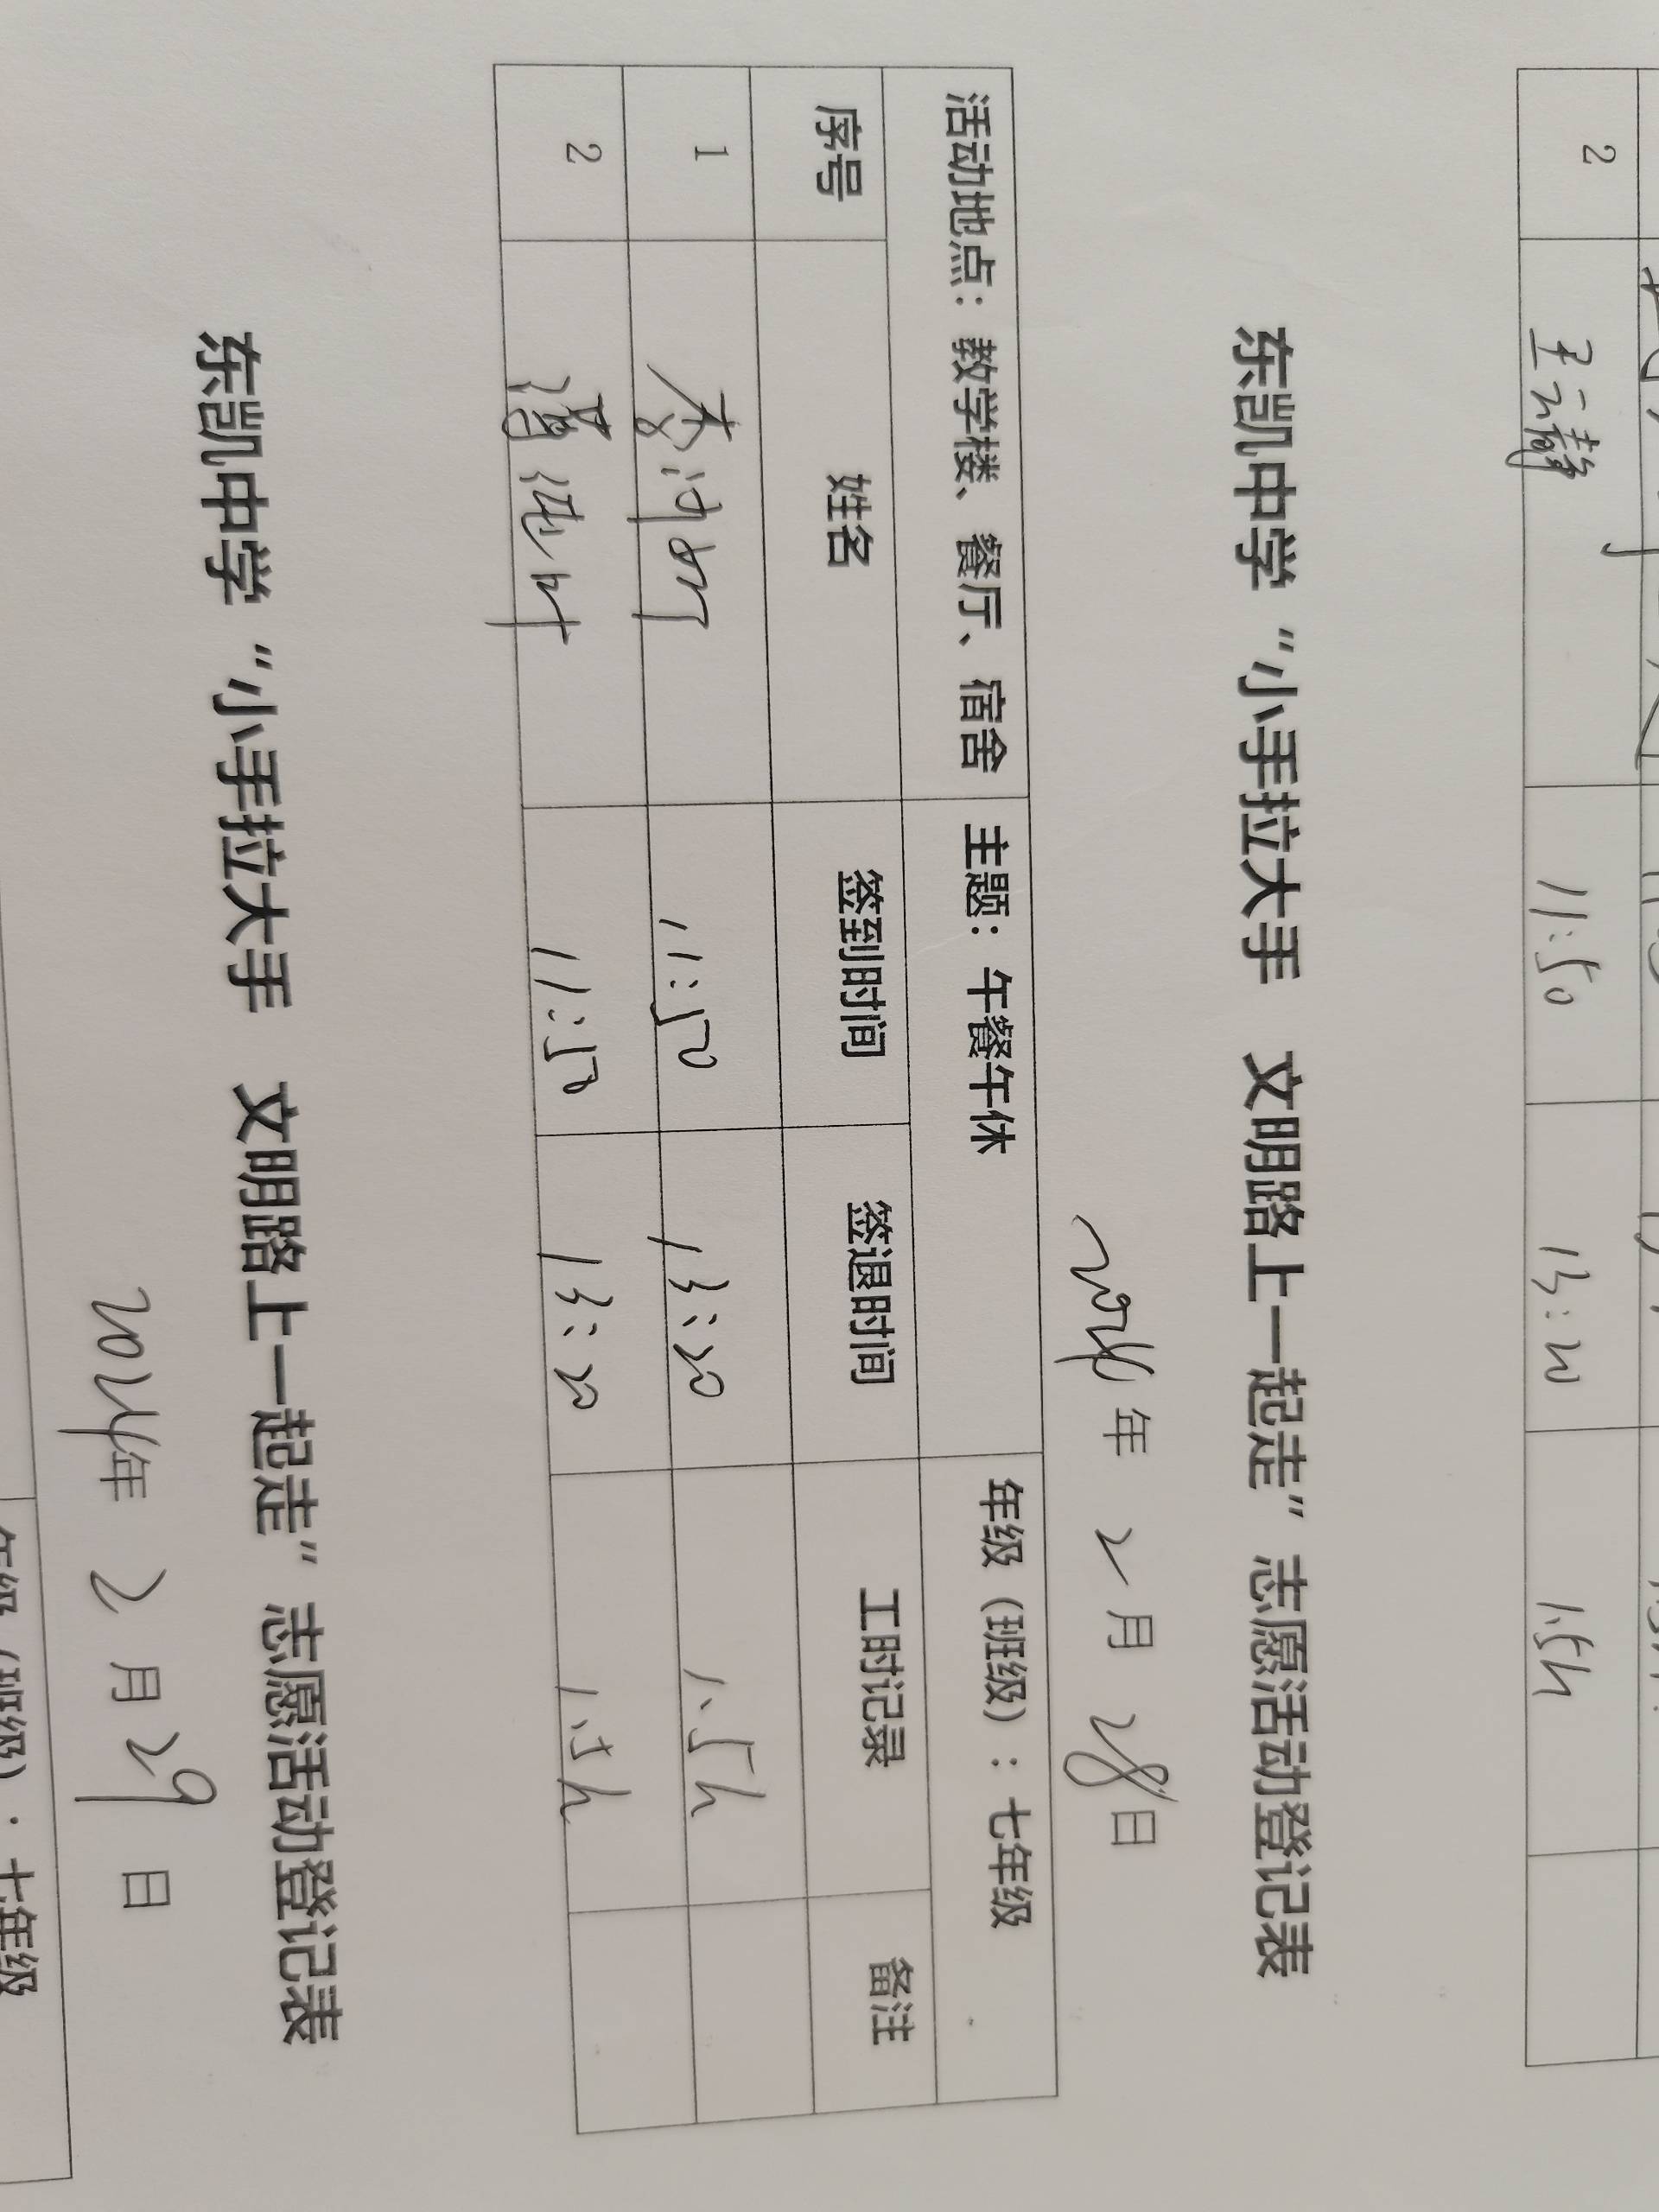 2 王云静 11:50 13:20 1.5h
东凯中学“小手拉大手 文明路上一起走”志愿活动登记表
2024年2月28日
活动地点：教学楼、餐厅、宿舍 主题：午餐午休 年级（班级）：七年级
序号 姓名 签到时间 签退时间 工时记录 备注
1 11:50 13:20 1.5h
2 11:50 13:20 1.5h
东凯中学“小手拉大手 文明路上一起走”志愿活动登记表
2024年2月29日
年级（班级）：七年级